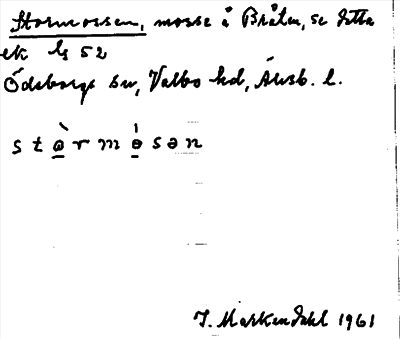 Stormossen, mosse å Bråten, se detta
ek bs 52
Ödeborgs sn, Valbo hd, Älvsb. l.
stòrmósən
J. Markendahl 1961